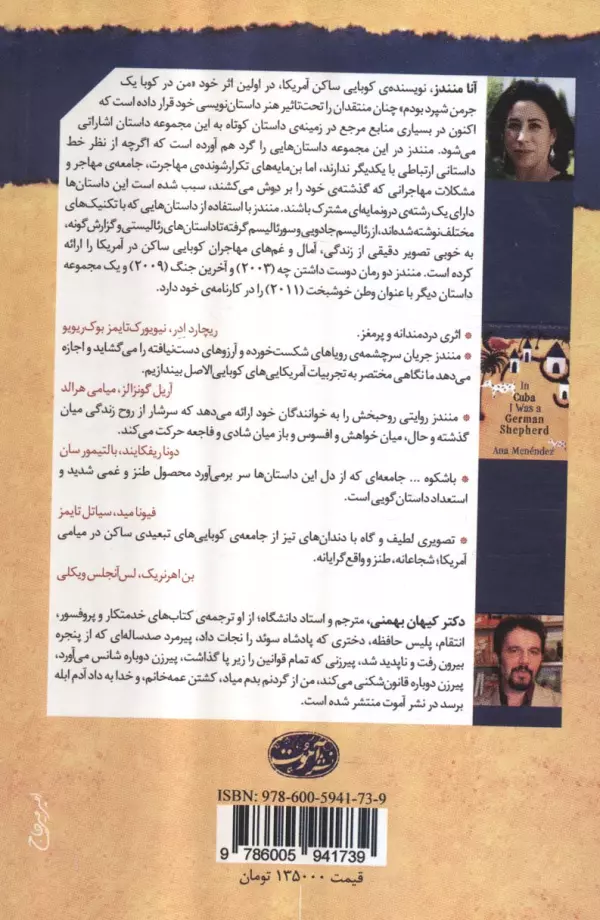 آنا منندز، نویسنده‌ی کوبایی ساکن آمریکا، در اولین اثر خود «من در کوبا یک
جرمن شپرد بودم» چنان منتقدان را تحت‌تاثیر هنر داستان‌نویسی خود قرار داده است که
اکنون در بسیاری منابع مرجع در زمینه‌ی داستان کوتاه به این مجموعه داستان اشاراتی
می‌شود. منندز در این مجموعه داستان‌هایی را گرد هم آورده است که اگرچه از نظر خط
داستانی ارتباطی با یکدیگر ندارند، اما بن‌مایه‌های تکرارشونده‌ی مهاجرت، جامعه‌ی مهاجر و
مشکلات مهاجرانی که گذشته‌ی خود را بر دوش می‌کشند، سبب شده است این داستان‌ها
دارای یک رشته‌ی درونمایه‌ای مشترک باشند. منندز با استفاده از داستان‌هایی که با تکنیک‌های
مختلف نوشته شده‌اند، از رئالیسم جادویی و سورئالیسم گرفته تا داستان‌های رئالیستی و گزارش گونه،
به خوبی تصویر دقیقی از زندگی، آمال و غم‌های مهاجران کوبایی ساکن در آمریکا را ارائه
کرده است. منندز دو رمان دوست داشتن چه (۲۰۰۳) و آخرین جنگ (۲۰۰۹) و یک مجموعه
داستان دیگر با عنوان وطن خوشبخت (۲۰۱۱) را در کارنامه‌ی خود دارد.
* اثری دردمندانه و پرمغز.
ریچارد اِدِر، نیویورک‌تایمز بوک‌ریویو
* منندز جریان سرچشمه‌ی رویاهای شکست‌خورده و آرزوهای دست‌نیافته را می‌گشاید و اجازه
می‌دهد ما نگاهی مختصر به تجربیات آمریکایی‌های کوبایی‌الاصل بیندازیم.
آریل گونزالز، میامی هرالد
* منندز روایتی روحبخش را به خوانندگان خود ارائه می‌دهد که سرشار از روح زندگی میان
گذشته و حال، میان خواهش و افسوس و باز میان شادی و فاجعه حرکت می‌کند.
دونا ریفکایند، بالتیمور سان
* باشکوه ... جامعه‌ای که از دل این داستان‌ها سر برمی‌آورد محصول طنز و غمی شدید و
استعداد داستان‌گویی است.
فیونا مید، سیاتل تایمز
* تصویری لطیف و گاه با دندان‌های تیز از جامعه‌ی کوبایی‌های تبعیدی ساکن در میامی
آمریکا؛ شجاعانه، طنز و واقع‌گرایانه.
بن اهرنریک، لس‌آنجلس ویکلی
In
Cuba
I Was a
German
Shepherd
Ana Menéndez
دکتر کیهان بهمنی، مترجم و استاد دانشگاه؛ از او ترجمه‌ی کتاب‌های خدمتکار و پروفسور،
انتقام، پلیس حافظه، دختری که پادشاه سوئد را نجات داد، پیرمرد صدساله‌ای که از پنجره
بیرون رفت و ناپدید شد، پیرزنی که تمام قوانین را زیر پا گذاشت، پیرزن دوباره شانس می‌آورد،
پیرزن دوباره قانون‌شکنی می‌کند، من از گردنم بدم میاد، کشتن عمه‌خانم، و خدا به داد آدم ابله
برسد در نشر آموت منتشر شده است.
نشر آموت
ISBN: 978-600-5941-73-9
9 786005 941739
قیمت ۱۳۵۰۰۰ تومان